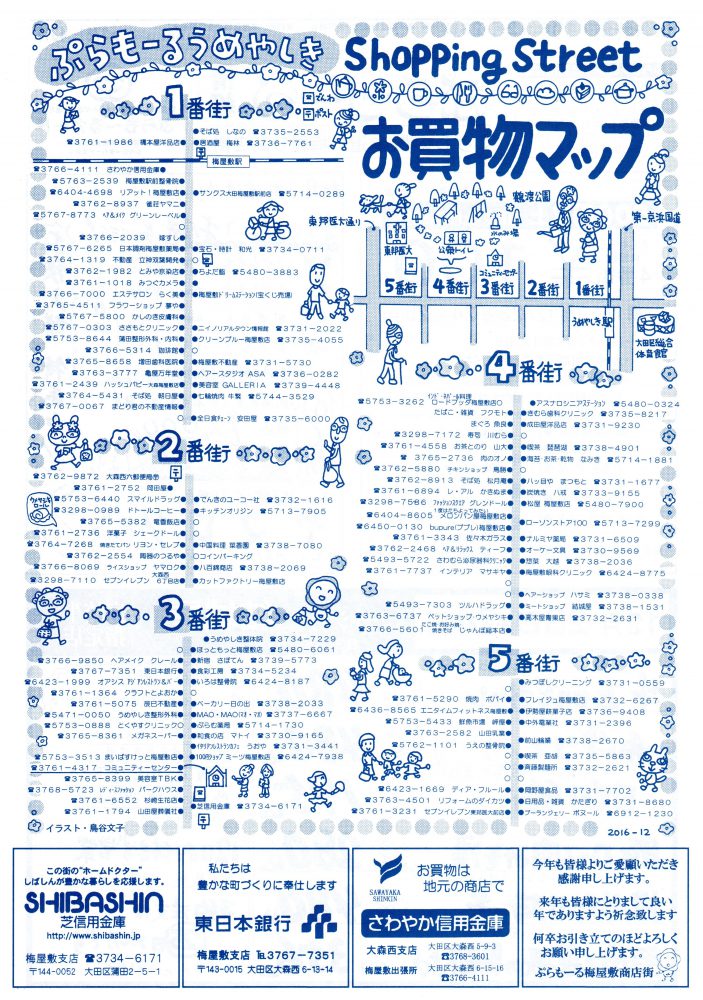 ぷらもーるうめやしき
Shopping Street
お買物マップ
でんわ
ポスト
1番街
☎3761-1986 橋本屋洋品店●
●そば処 しなの ☎3735-2553
●居酒屋 梅林 ☎3736-7761
梅屋敷駅
☎3766-4111 さわやか信用金庫●
☎5763-2539 梅屋敷駅前整骨院●
☎6404-4698 リアット!梅屋敷店●
☎3762-8937 雀荘ヤマニ●
☎5767-8773 ヘア&メイク グリーンレーベル●
●サンクス大田梅屋敷駅前店 ☎5714-0289
☎3766-2039 嫁ずし●
☎5767-6265 日本調剤梅屋敷薬局●
☎3764-1319 不動産 立神双葉開発●
☎3762-1982 とみや京染店●
☎3761-1018 みつぐカメラ●
☎3766-7000 エステサロン らく美●
☎3765-4511 フラワーショップ 夢や●
☎5767-5800 かしのき皮膚科●
☎5767-0303 ささもとクリニック●
☎5753-8644 蒲田整形外科・内科●
☎3766-5314 珈琲館●
☎3765-8658 増田歯科医院●
☎3763-3777 亀屋万年堂●
☎3761-2439 ハッシュパピー大森梅屋敷店●
☎3764-5431 そば処 朝日屋●
☎3767-0067 まどり君の不動産情報●
●宝石・時計 和光 ☎3734-0711
●ちよだ鮨 ☎5480-3883
●梅屋敷ドリームステーション(宝くじ売場)
●ニイノリアルタウン情報館 ☎3731-2022
●クリーンブルー梅屋敷店 ☎3735-4055
●梅屋敷不動産 ☎3731-5730
●ヘアースタジオ ASA ☎3736-0282
●美容室 GALLERIA ☎3739-4448
●七輪焼肉 牛繁 ☎5744-3529
●全日食チェーン 安田屋 ☎3735-6000
2番街
☎3762-9872 大森西六郵便局〶
☎3761-2752 岡田屋●
☎5753-6440 スマイルドラッグ●
☎3298-0989 ドトールコーヒー●
☎3765-5382 竜香飯店●
☎3761-2736 洋菓子 シェークドール●
☎3764-7268 焼きたてパン リヨン・セレブ●
☎3762-2554 陶器のつるや●
☎3766-8069 ライスショップ ヤマロク●
☎3298-7110 セブンイレブン 大森西6丁目店●
ウメサンロール
●でんきのユーコー社 ☎3732-1616
●キッチンオリジン ☎5713-7905
●中国料理 菜香園 ☎3738-7080
●コインパーキング
●八百錦商店 ☎3738-2069
●カットファクトリー梅屋敷店
3番街
☎3766-9850 ヘアメイク クレール●
☎3767-7351 東日本銀行●
☎6423-1999 オアシス アジアンレストラン&バー●
☎3761-1364 クラフトとよおか●
☎3761-5075 辰巳不動産●
☎5471-0050 うめやしき整形外科●
☎5753-0888 とくやすクリニック●
☎3765-8361 メガネスーパー●
☎5753-3513 まいばすけっと梅屋敷店●
☎3761-4317 コミュニティーセンター●
☎3765-8399 美容室TBK●
☎3768-5723 レディースファッション パークハウス●
☎3761-6552 杉崎生花店●
☎3761-1794 山田屋葬儀社●
●うめやしき整体院 ☎3734-7229
●ほっともっと梅屋敷店 ☎5480-6061
●新宿 さぼてん ☎3739-5773
●食彩工房 ☎3734-5234
●いろは整骨院 ☎6424-8187
●ベーカリー日の出 ☎3738-2033
●MAO・MAO(マオ・マオ) ☎3737-6667
●ぷらむ薬局 ☎5714-1730
●和食の店 マトイ ☎3730-9165
●イタリアレストランカフェ うおや ☎3731-3441
●100円ショップ ミーツ梅屋敷店 ☎6424-7938
●芝信用金庫 ☎3734-6171
イラスト・鳥谷文子
東邦医大通り
鶴渡公園
第一京浜国道
東邦医大
公衆トイレ
コミュニティセンター
5番街
4番街
3番街
2番街
1番街
うめやしき駅
大田区総合体育館
4番街
インド・ネパール料理
☎5753-3262 ロードブッダ梅屋敷店
たばこ・雑貨 フクモト●
まぐろ 魚良●
☎3298-7172 寿司 川むら●
☎3761-4558 お茶とのり 山大●
☎3765-2736 肉のオノ●
☎3762-5880 チキンショップ 鳥勝●
☎3762-8913 そば処 松月庵●
☎3761-6894 レ・アル かきぬま●
☎3298-7586 ファッションスタジオ グレンドール●
1度はたちよってみたい
☎6404-8605 メロンパン屋梅屋敷店●
☎6450-0130 bupure(ププレ)梅屋敷店●
☎3761-3343 佐々木ガラス●
☎3762-2468 ヘア&リラックス ティーフ●
☎5493-5722 さわむら泌尿器科クリニック●
☎3761-7737 インテリア マサキヤ●
☎5493-7303 ツルハドラッグ●
☎3763-6737 ペットショップ・ウメヤシキ●
たこ焼・お好み焼 焼きそば
☎3766-5601 じゃんぼ総本店●
●アスナロシニアステーション ☎5480-0324
●きむら歯科クリニック ☎3735-8217
●成田屋洋品店 ☎3731-9230
●喫茶 琵琶湖 ☎3738-4901
●海苔・お茶・乾物 なみき ☎5714-1881
●八ッ目や まつもと ☎3731-1677
●炭焼き 八戒 ☎3733-9155
●松屋 梅屋敷店 ☎5480-7900
●ローソンストア100 ☎5713-7299
●ナルミヤ薬局 ☎3731-6509
●オーケー文具 ☎3730-9569
●惣菜 大越 ☎3738-2036
●梅屋敷眼科クリニック ☎6424-8775
●ヘアーショップ ハサミ ☎3738-0338
●ミートショップ 結城屋 ☎3738-1531
●高木屋青果店 ☎3732-2631
5番街
☎3761-5290 焼肉 ボパイ●
☎6436-8565 エニタイムフィットネス梅屋敷●
☎5753-5433 鮮魚市場 岬屋●
☎3763-2582 山田乳業●
☎5762-1101 うえの整骨院●
☎6423-1669 ディア・フルール●
☎3763-4501 リフォームのダイカツ●
☎3761-3231 セブンイレブン東邦医大前店●
●みつぼしクリーニング ☎3731-0559
●プレイジュ梅屋敷店 ☎3732-6267
●伊勢屋餅菓子店 ☎3736-9408
●中外電業社 ☎3731-2396
●前山輪業 ☎3738-2670
●喫茶 亜胡 ☎3735-5863
●斉藤製麺所 ☎3732-2621
●岡野屋食品 ☎3731-7702
●日用品・雑貨 かたぎり ☎3731-8680
●ブーランジェリー ボヌール ☎6912-1230
2016-12
この街の“ホームドクター”
しばしんが豊かな暮らしを応援します。
SHIBASHIN
芝信用金庫
http://www.shibashin.jp
梅屋敷支店 ☎3734-6171
〒144-0052 大田区蒲田2-5-1
私たちは
豊かな町づくりに奉仕します
東日本銀行
梅屋敷支店 ℡3767-7351
〒143-0015 大田区大森西6-13-14
SAWAYAKA
SHINKIN
お買物は
地元の商店で
さわやか信用金庫
大森西支店 大田区大森西5-9-3
☎3768-3601
梅屋敷出張所 大田区大森西6-15-16
☎3766-4111
今年も皆様よりご愛顧いただき
感謝申し上げます。
来年も皆様にとりまして良い
年でありますよう祈念致します
何卒お引き立てのほどよろしく
お願い申し上げます。
ぷらもーる梅屋敷商店街